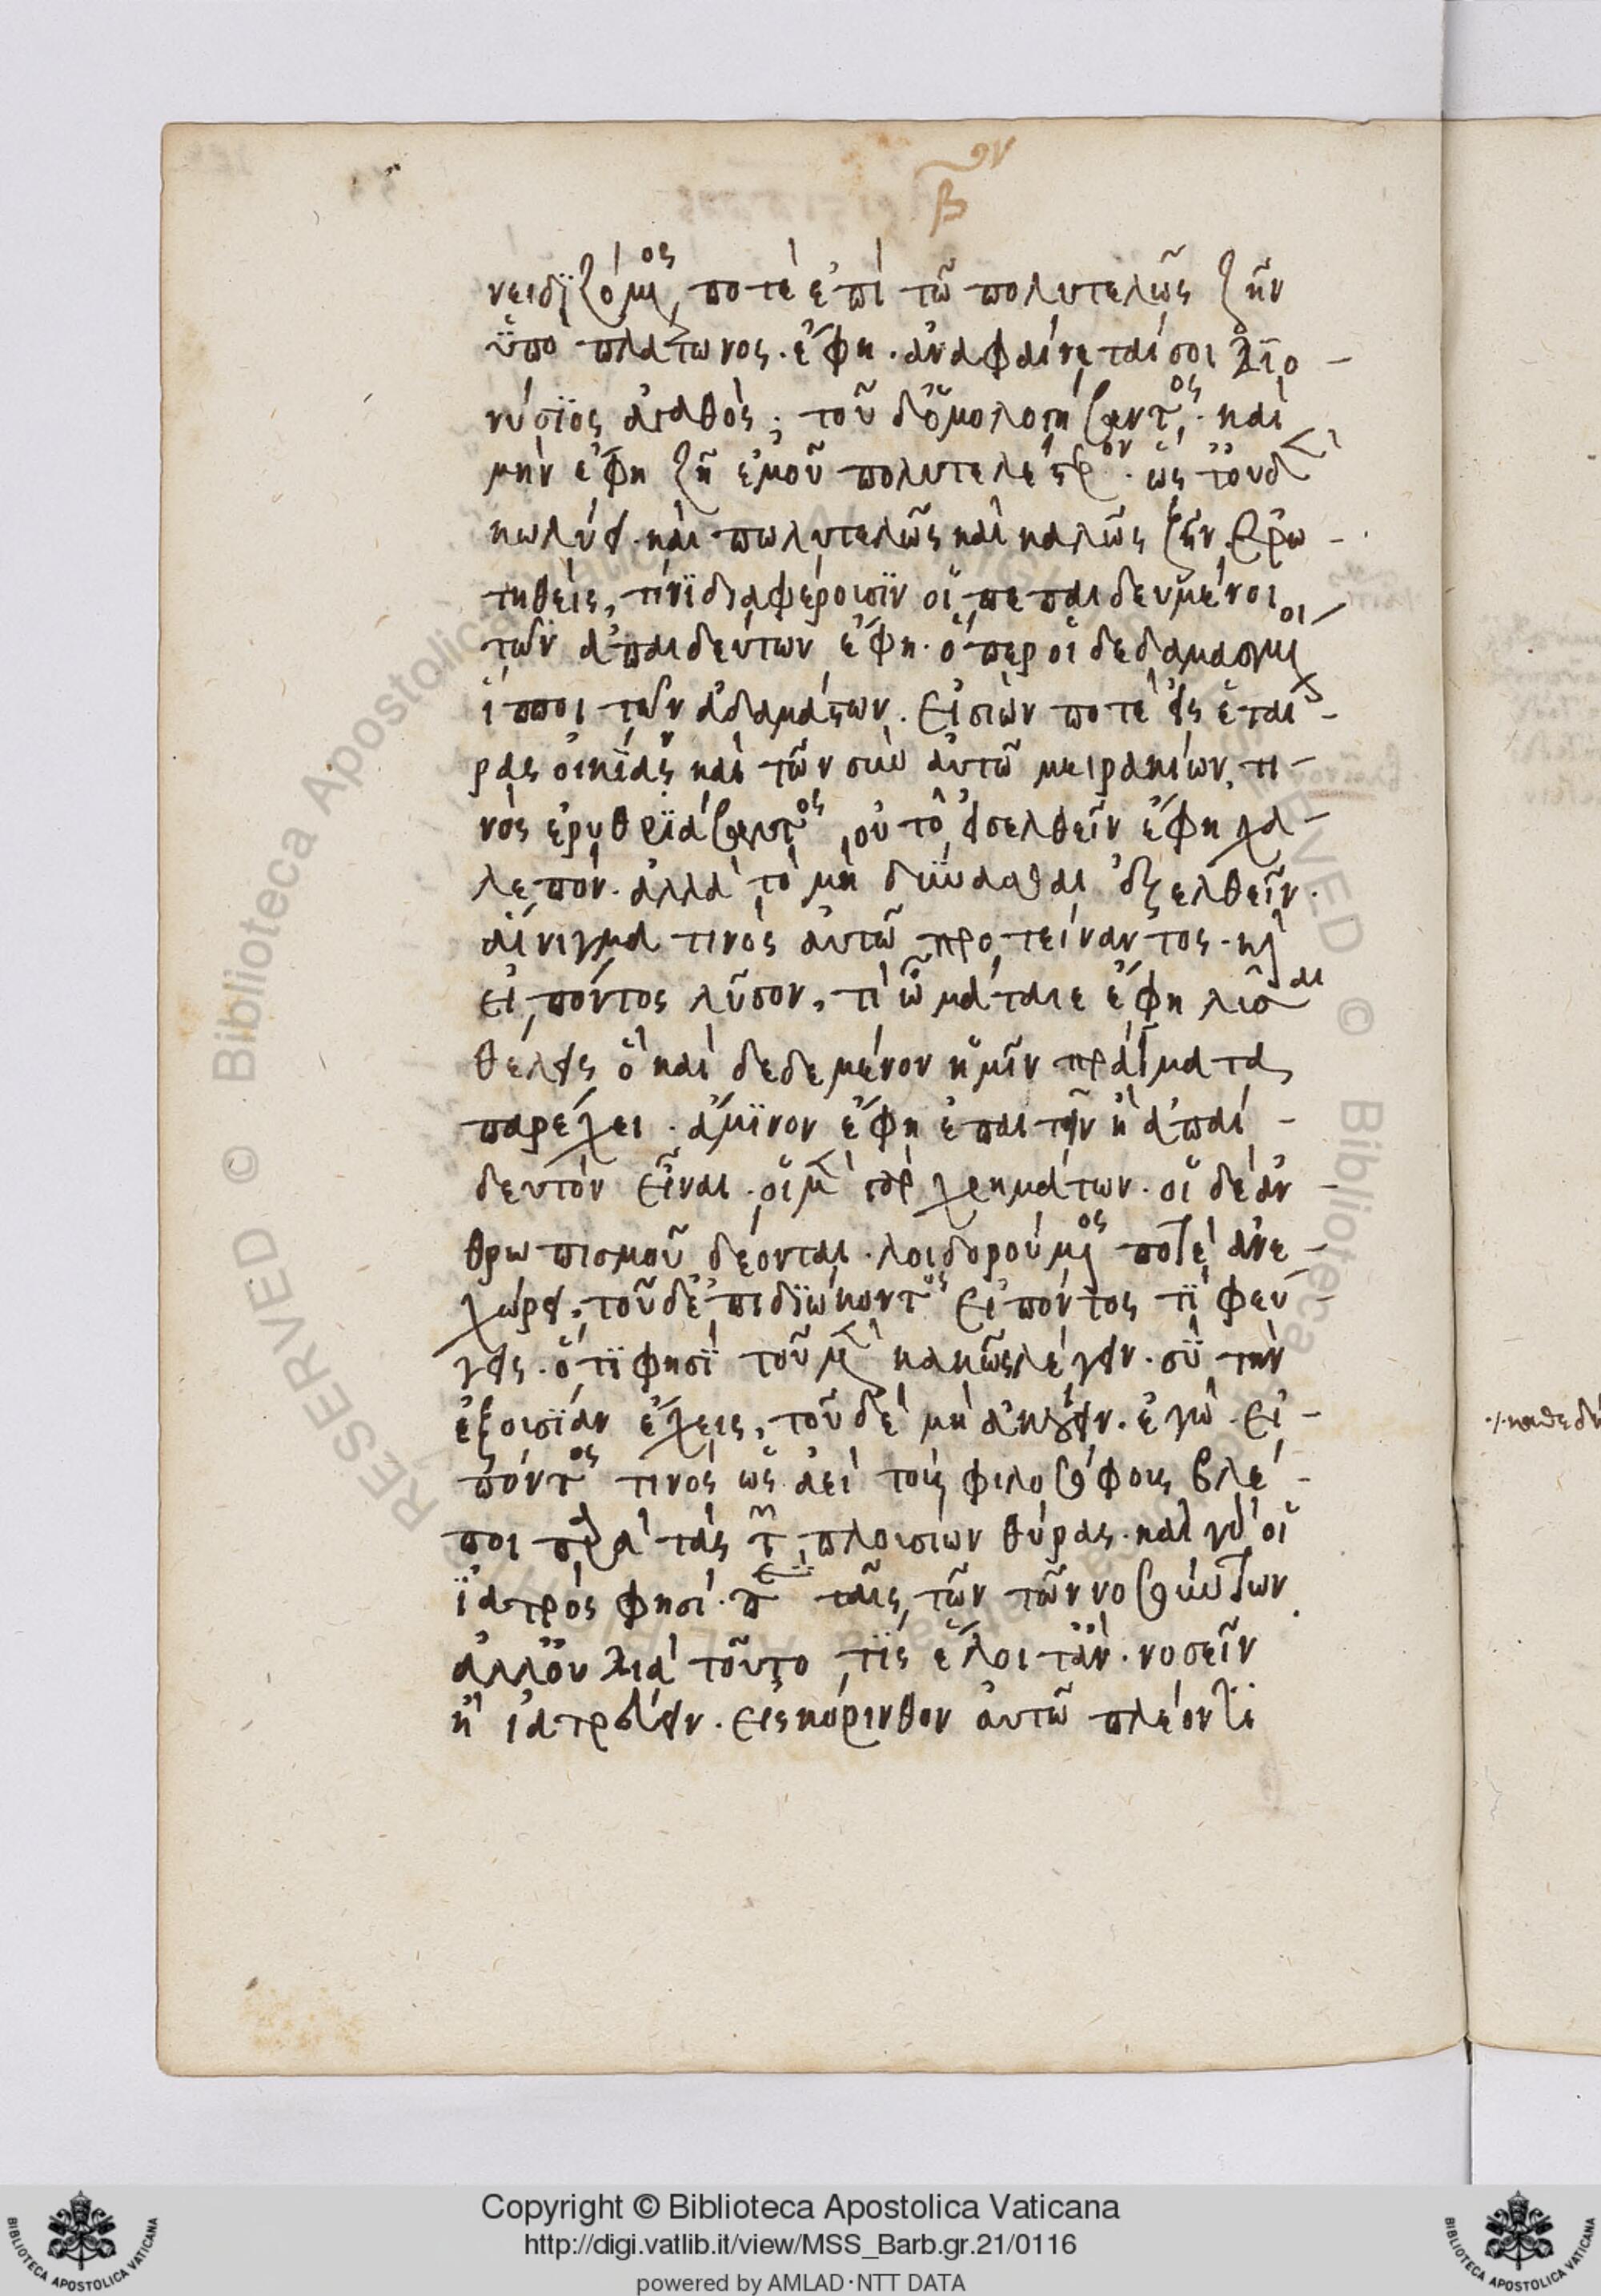 βον
νειδϊζόμενος ποτὲ ἐπὶ τῶ πολυτελῶς ζῆν
ὕπο πλάτωνος. ἔφη. ἀναφαίνεταί σοι Διο-
νύσϊος ἀγαθός; τοῦ δ' ὁμολογήσαντος. καὶ
μὴν ἔφη ζῆ ἐμοῦ πολυτελέστερον. ὡς τ' οὐδὲν
κωλύει. καὶ πωλυτελῶς καὶ καλῶς ζῆν. ἐρω-
τηθεὶς, τίνϊ διαφέρουσϊν οἱ πεπαιδευμένοι
τῶν ἀπαιδεύτων ἔφη. ὅπερ οἱ δεδαμασμένοι
ἵπποι τῶν ἀδαμάστων. εἰσιὼν ποτὲ εἰς ἑται-
ρας οἰκίαν καὶ τῶν σὺν αὐτῶ μειρακίων τι-
νὸς ἐρυθρϊάσαντος, οὐ τὸ εἰσελθεῖν ἔφη χα-
λεπόν. ἀλλὰ τὸ μὴ δύνασθαι ἐξελθεῖν.
αἴνιγμα τινὸς αὐτῶ προτείναντος. καὶ
εἰπόντος λῦσον, τί ὦ μάταιε ἔφη λῦσαι
θέλεις ὃ καὶ δεδεμένον ἡμῖν πράγματα
παρέχει. ἄμϊνον ἔφη ἐπαιτῆν ἢ ἀπαί-
δευτόν εἶναι. οἱ μὲν γὰρ χρημάτων. οἱ δὲ ἀν-
θρωπισμοῦ δέονται. λοιδορούμενος ποτὲ ἀνε-
χώρει, τοῦ δ' ἐπιδϊώκοντος εἰπόντος τϊ φεύ-
γεις. ὅτϊ φησϊ τοῦ μὲν κακῶς λέγειν. σϋ τὴν
ἐξουσϊαν ἔχεις, τοῦ δὲ μὴ ἀκούειν. ἐγώ. εἰ-
πόντος τινὸς ὡς ἀεὶ τοὺς φιλοσόφους βλέ-
ποι παρὰ τὰς τῶν πλουσίων θύρας. καὶ γὰρ οἱ
ϊατρός φησί. παρὰ ταῖς τῶν τῶν νοσούντων.
ἀλλ' οὐ διὰ τοῦτο τϊς ἕλοιτ' ἂν. νοσεῖν
ἢ ἰατρεύειν. εἰς κόρινθον αὐτῶ πλέοντϊ
Copyright © Biblioteca Apostolica Vaticana
http://digi.vatlib.it/view/MSS_Barb.gr.21/0116
powered by AMLAD·NTT DATA